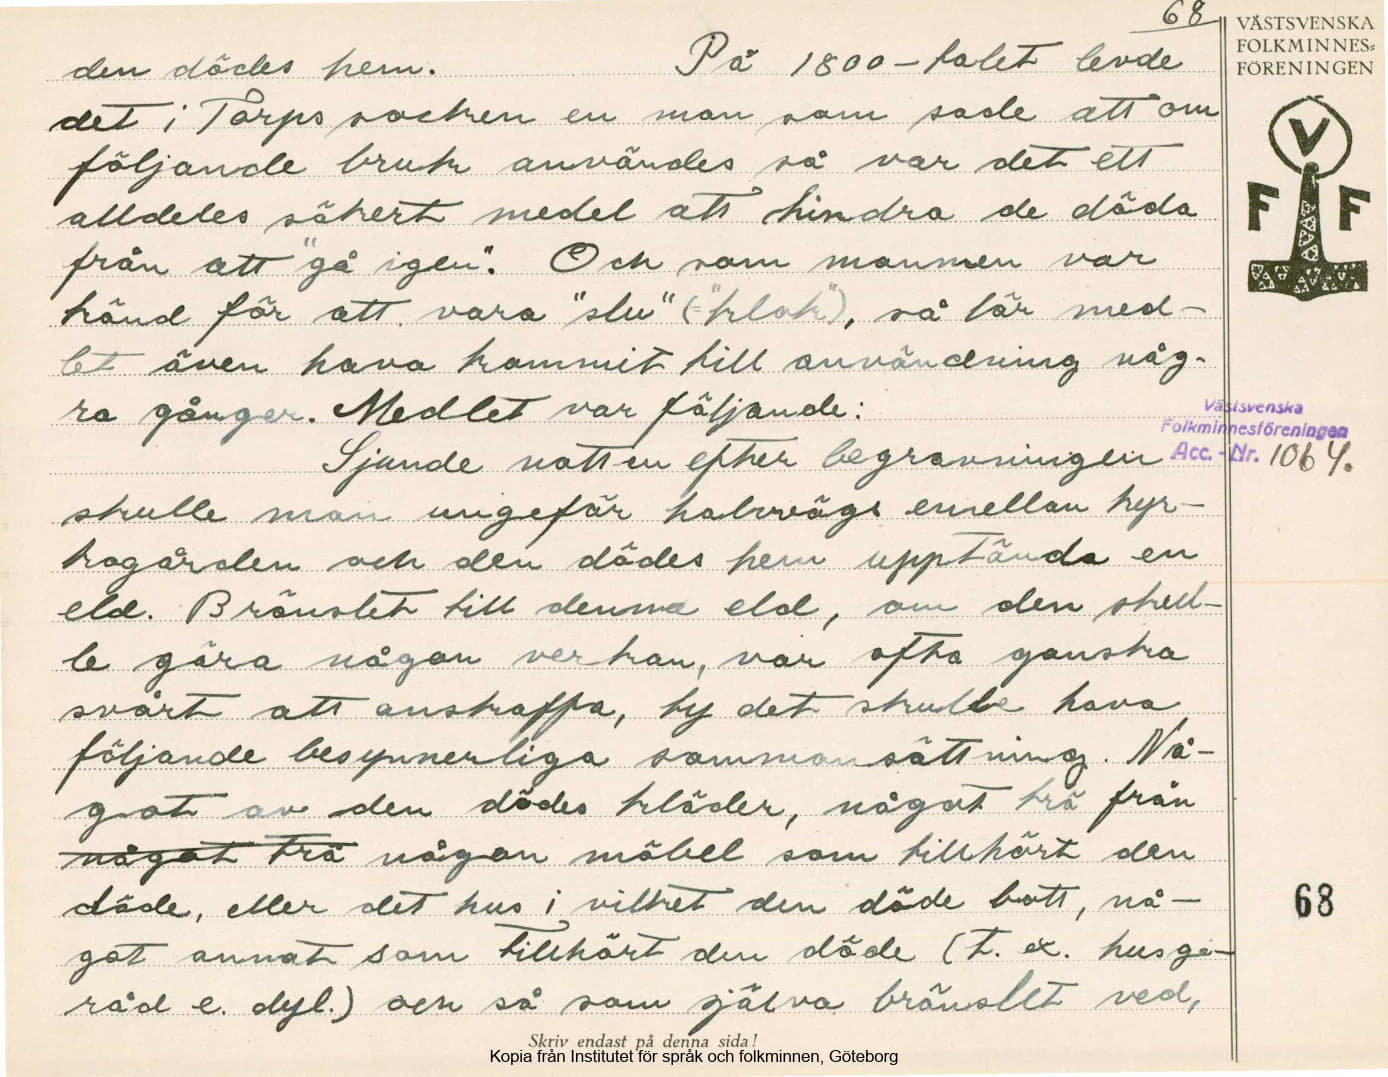 68
VÄSTSVENSKA
FOLKMINNES-
FÖRENINGEN
V
F F
den dödes hem. På 1800-talet levde
det i Torps socken en man som sade att om
följande bruk användes så var det ett
alldeles säkert medel att hindra de döda
från att "gå igen". Och som mannen var
känd för att vara "slu" (="klok"), så lär med-
let även hava kommit till användning någ-
ra gånger. Medlet var följande:
Västsvenska
Folkminnesföreningen
Acc.-Nr. 1064.
Sjunde natten efter begravningen
skulle man ungefär halvvägs emellan kyr-
kogården och den dödes hem upptända en
eld. Bränslet till denna eld, om den skull-
le göra någon verkan, var ofta ganska
svårt att anskaffa, ty det skulle hava
följande besynnerliga sammansättning. Nå-
got av den dödes kläder, något trä från
något trä någon möbel som tillhört den
döde, eller det hus i vilket den döde bott, nå-
got annat som tillhört den döde (t. ex. husge-
råd e. dyl.) och så som själva bränslet ved,
68
Skriv endast på denna sida!
Kopia från Institutet för språk och folkminnen, Göteborg